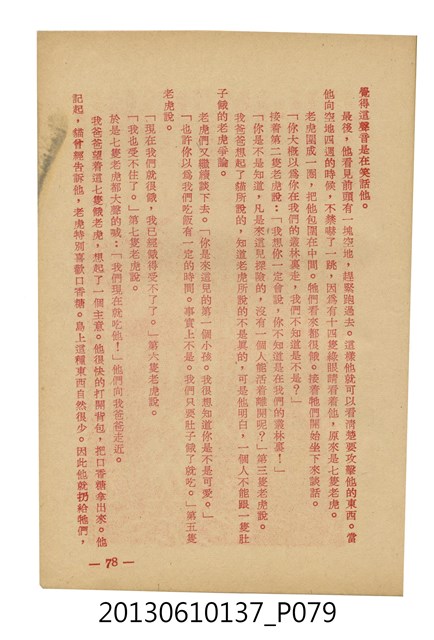 覺得這聲音是在笑話他。
最後，他看見前頭有一塊空地，趕緊跑過去。這樣他就可以看清楚要攻擊他的東西。當
他向空地四週的時候，不禁嚇了一跳，因爲有十四隻綠眼睛看着他，原來是七隻老虎。
老虎圍成一圈，把他包圍在中間。牠們看來都很餓。接着牠們開始坐下來談話。
「你大概以爲你在我們的叢林裏走，我們不知道是不是？」
接着第二隻老虎說：「我想你一定會說，你不知道是在我們的叢林裏！」
「你是不是知道，凡是來這兒探險的，沒有一個人能活着離開呢？」第三隻老虎說。
我爸爸想起了貓所說的，知道老虎所說的不是眞的，可是他明白，一個人不能跟一隻肚
子餓的老虎爭論。
老虎們又繼續談下去。「你是來這兒的第一個小孩。我很想知道你是不是可愛。」
「也許你以爲我們吃飯有一定的時間。事實上不是。我們只要肚子餓了就吃。」第五隻
老虎說。
「現在我們就很餓，我已經餓得受不了了。」第六隻老虎說。
「我也受不住了。」第七隻老虎說。
於是七隻老虎都大聲的喊：「我們現在就吃他！」他們向我爸爸走近。
我爸爸望着這七隻餓老虎，想起了一個主意。他很快的打開背包，把口香糖拿出來。他
記起，貓曾經告訴他，老虎特別喜歡口香糖。島上這種東西自然很少。因此他就扔給牠們，
— 78 —
20130610137_P079